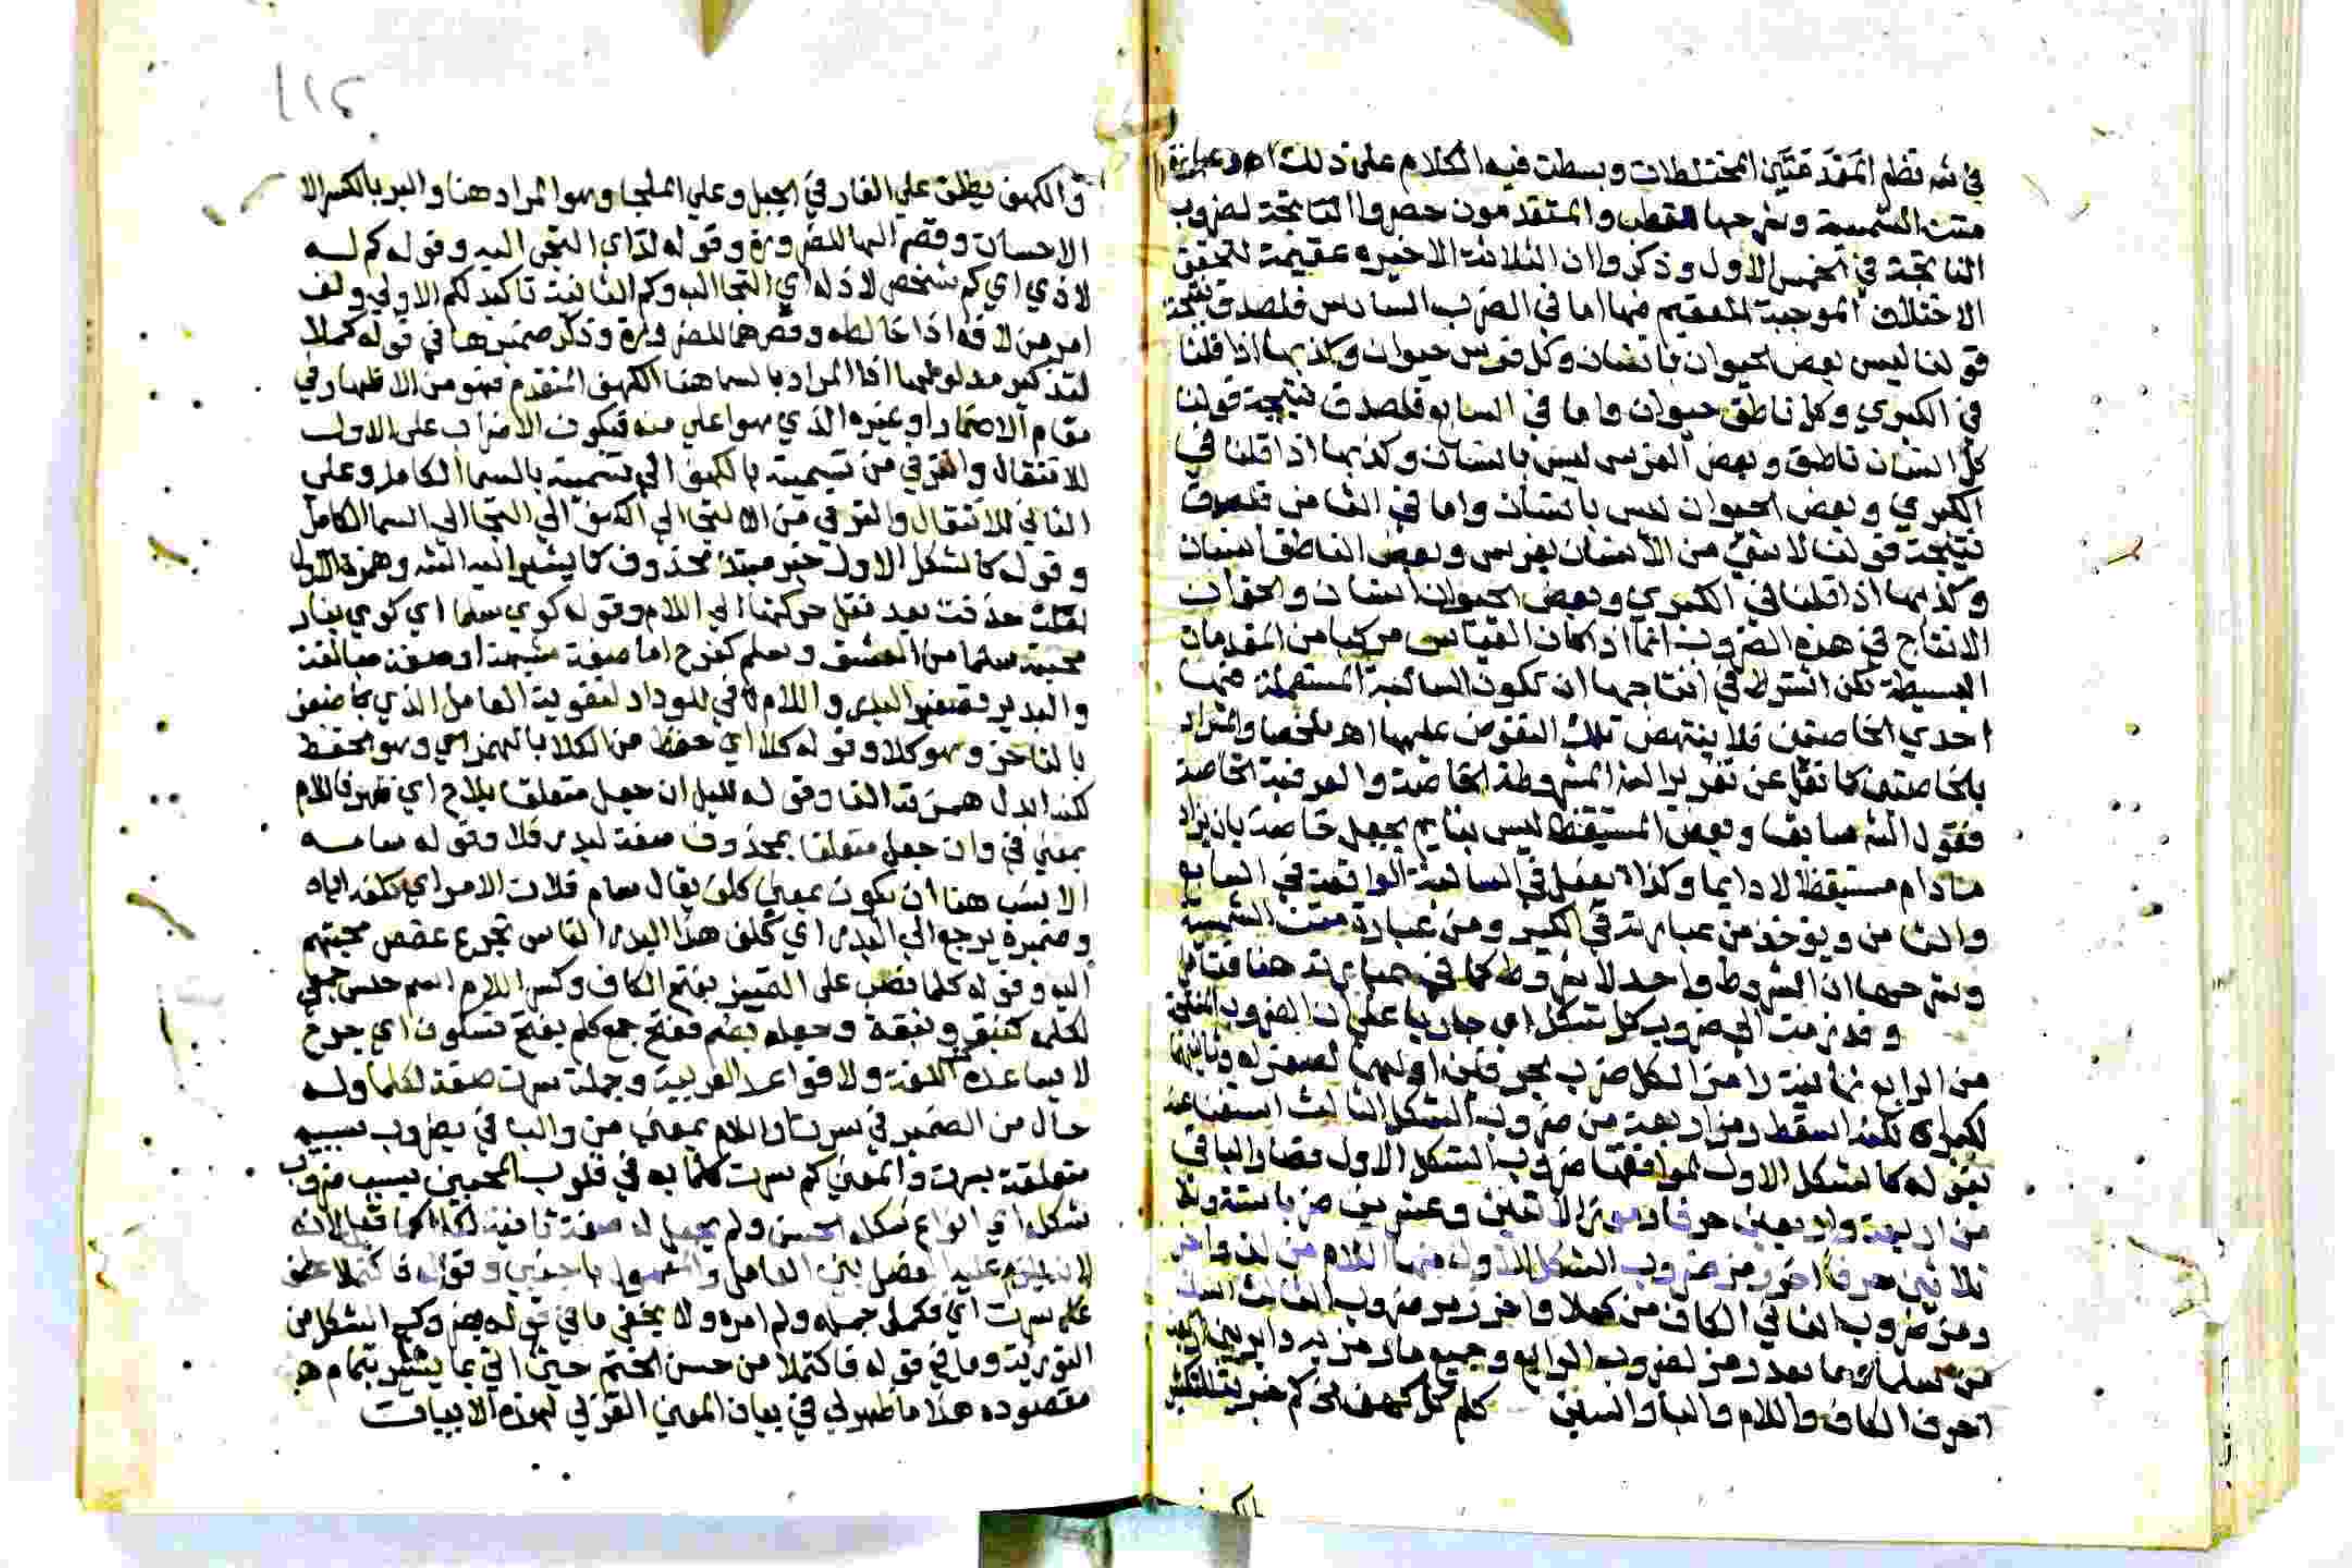 في شرح نظم المقدمتين المختلطات وبسطت فيه الكلام على ذلك اه وعبارة
متن الشمسية وشرحها للقطب والمتقدمون حصروا الناتجة لضروب
الناتجة في الخمس الاول وذكروا ان الثلاثة الاخيره عقيمة لتحقق
الاختلاف الموجبة للعقيم منها اما في الضرب السادس فلصدق نتيجة
قولنا ليس بعض الحيوان بانسان وكل فرس حيوان وكذبها اذا قلنا
في الكبري وكل ناطق حيوان واما في السابع فلصدق نتيجة قولنا
كل انسان ناطق وبعض الفرس ليس بانسان وكذبها اذا قلنا في
الكبري وبعض الحيوان ليس بانسان واما في الثامن فلصدق
نتيجة قولنا لا شي من الانسان بفرس وبعض الناطق انسان
وكذبها اذا قلنا في الكبري وبعض الحيوان انسان والحق ان
الانتاج في هذه الضروب انما اذا كان القياس مركبا من المقدمات
البسيطة لكن اشترط في انتاجها ان تكون السالبة المستعملة منها
احدي الخاصتين فلا ينتهض تلك النقوض عليها اه ملخصا والمراد
بالخاصتين كما نقل عن تقرير المشروطة الخاصة والعرفية الخاصة
فقول الش سابقا وبعض المستيقظ ليس بنايم يجعل خاصة بان يزاد
مادام مستيقظا لا دايما وكذا يفعل في السالبة الواقعة في السابع
والثامن ويؤخذ من عبارته في الكبير ومن عبارة متن الشمسية
وشرحها ان الشروط واحد لا شروط كما في عبارته هنا فتامل
وقد رمزت الى ضروب كل شكل اي جاريا على ان الضروب المنتجة
من الرابع ثمانية رامزا لكل ضرب بحرفين اولهما لصغراه وثانيهما
لكبراه لكنه اسقط رمز اربعة من ضروب الشكل الثالث استغناء عنه
بقوله كالشكل الاول لموافقتها ضروب الشكل الاول فصار الباقي
من اربعة واربعين حرفا رموز الاثنين وعشرين ضربا ستة وثلا
ثلاثين حرفا اخر رمز ضروب الشكل الاول منها اللام من لذ واخر
رمز ضروب الثاني الكاف من كملا واخر رمز ضروب الثالث السين
من سلما وما بعد رمز لضروب الرابع وجميع ما رمز به دائر بين اربعة
احرف الكاف واللام والبا والسين كلم كل كهف لي كم خبرية للتكثير
والكهف يطلق علي الغار في الجبل وعلي الملجا وهو المراد هنا والبر بالكسر الا
الاحسان وقصر البها للضرورة وقوله لذ اي التجى اليه وقوله كم له
لاذي اي كم شخص لاذ له اي التجا اليه وكم الثانية تاكيد لكم الاولي ولف
امر من لافه اذا خالطه وقصرها للضرورة وذكر ضميرها في قوله كملا
لتذكير مدلولها اذ المراد بالسما هنا الكهف المتقدم فهو من الاظهار في
مقام الاضمار او غيره الذي هو اعلي منه فيكون الاضراب على الاول
للانتقال والترقي من تسميته بالكهف الي تسميته بالسما الكامل وعلي
الثاني للانتقال والترقي من الالتجا الي الكهف الي التجا الي السما الكامل
وقوله كالشكل الاول خبر مبتدا محذوف كما يشير اليه الش وهمزة الاول
حذفت بعد نقل حركتها الي اللام وقوله كوي سلما اي كوي بنار
محبته سلما من العشق وسلم كفرح اما صفة مشبهة او صيغة مبالغة
والبدير تصغير البدر واللام في للوداد لتقوية العامل الذي
بالتاخر وهو كلا وقوله كلا اي حفظ من الكلا بالهمز اي وهو الحفظ
لكنه ابدل همزته الفا وقوله لليل ان جعل متعلقا بلاح اي ظهر فاللام
بمعني في وان جعل متعلقا بمحذوف صفة لبدر فلا وقوله سامه
الانسب هنا ان يكون بمعني كلف يقال سام فلان الامر اي كلفه اياه
وضميره يرجع الي البدر اي كلف هذا البدر الناس تجرع غصص محبتهم
اليه وقوله كلما نصب على التمييز بفتح الكاف وكسر اللام اسم جنس جمعي
لكلمة كنبق ونبقة وجعله بضم ففتح جمع كلم بفتح فسكون اي جرح
لا يساعده اللغة ولا قواعد العربية وجملة سرت صفة لكلما وله
حال من الضمير في سرت واللام بمعني من والبا في بضروب سببيه
متعلقة بسرت والمعني كم سرت كلما به في قلوب المحبين بسبب ضروب
شكله اي انواع شكله الحسن ولم يجعل له صفة ثانية لكلما كما قيل لانه
لانه يلزم عليه الفصل بين العامل والمعمول باجنبي وقوله فاكتملا عطف
علي سرت اي فكمل جماله ولم امره ولا يخفى ما في قوله بضروب الشكل من
التورية وما في قوله فاكتملا من حسن الختم حيث اتي بما يشعر بتمام
مقصوده هذا ما ظهر لي في بيان المعني الغزلي لهذه الابيات